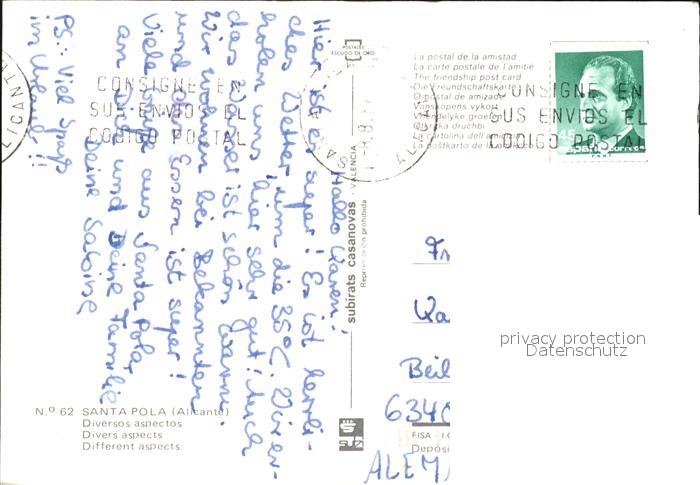 Hallo Karen!
Hier ist es super! Es ist herrli-
ches Wetter, um die 35°C. Wir er-
holen uns hier sehr gut! Auch
das Wasser ist schön warm.
Wir wohnen bei Bekannten
und das Essen ist super!
Viele Grüße aus Santa Pola,
an Dich und Deine Familie
Deine Sabine
PS: Viel Spaß
im Urlaub!!
CONSIGNE EN
SUS ENVIOS EL
CODIGO POSTAL
ALICANTE
POSTALES
ESCUDO DE ORO
La postal de la amistad
La carte postale de l'amitié
The friendship post card
Die Freundschaftskarte
O postal de amizade
Vänskapens vykort
Vriendelyke groeten
La cartolina dell'
CONSIGNE EN
SUS ENVIOS EL
CODIGO POSTAL
45
España correos
subirats casanovas - VALENCIA
Reproducción prohibida
Fr
Ka
Beil
6340
ALEM
FISA -
Depósi
privacy protection
Datenschutz
N.º 62 SANTA POLA (Alicante)
Diversos aspectos
Divers aspects
Different aspects